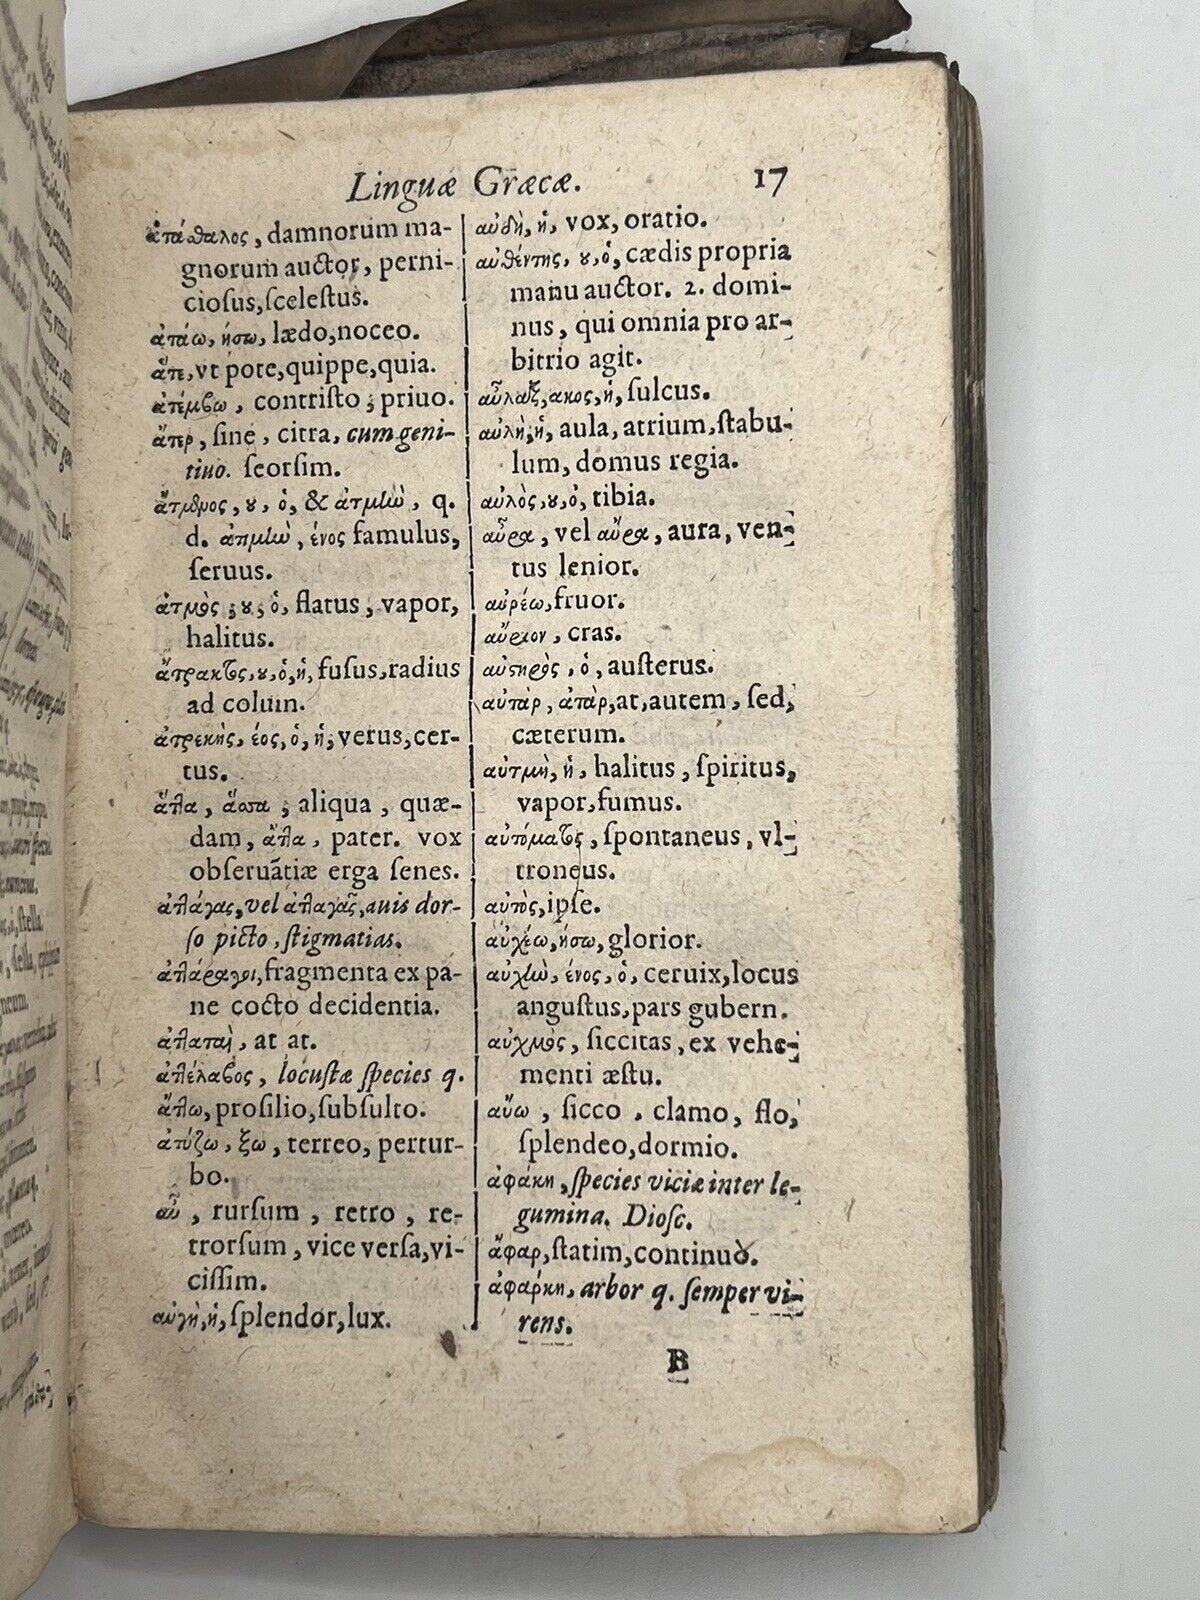 Linguæ Græcæ.
17
ἀτάσθαλος, damnorum ma-
gnorum auctor, perni-
cioſus, ſceleſtus.
ἀτάω, ήσω, lædo, noceo.
ἅτε, vt pote, quippe, quia.
ἀτέμβω, contriſto; priuo.
ἄτερ, ſine, citra, cum geni-
tiuo. ſeorſim.
ἄτμενος, ου, ὁ, & ἀτμὴν, q.
d. ἀτμὴν, ένος famulus,
ſeruus.
ἀτμὸς, ου, ὁ, flatus, vapor,
halitus.
ἄτρακτος, ου, ὁ, ἡ, fuſus, radius
ad colum.
ἀτρεκὴς, έος, ὁ, ἡ, verus, cer-
tus.
ἄττα, ἅσσα, aliqua, quæ-
dam, ἄττα, pater. vox
obſeruãtiæ erga ſenes.
ἀτλάγας, vel ἀτλαγᾶς, auis dor-
ſo picto, ſtigmatias.
ἀττάραγοι, fragmenta ex pa-
ne cocto decidentia.
ἀτταταὶ, at at.
ἀττέλαβος, locuſtæ ſpecies q.
ἄττω, proſilio, ſubſulto.
ἀτύζω, ξω, terreo, pertur-
bo.
αὖ, rurſum, retro, re-
trorſum, vice verſa, vi-
ciſſim.
αὐγὴ, ἡ, ſplendor, lux.
αὐδὴ, ἡ, vox, oratio.
αὐθέντης, ου, ὁ, cædis propria
manu auctor. 2. domi-
nus, qui omnia pro ar-
bitrio agit.
αὖλαξ, ακος, ἡ, ſulcus.
αὐλὴ, ἡ, aula, atrium, ſtabu-
lum, domus regia.
αὐλὸς, ου, ὁ, tibia.
αὖρα, vel αὔρα, aura, ven-
tus lenior.
αὐρέω, fruor.
αὔριον, cras.
αὐστηρὸς, ὁ, auſterus.
αὐτὰρ, ἀτὰρ, at, autem, ſed,
cæterum.
αὐτμὴ, ἡ, halitus, ſpiritus,
vapor, fumus.
αὐτόματος, ſpontaneus, vl-
troneus.
αὐτὸς, ipſe.
αὐχέω, ήσω, glorior.
αὐχὴν, ένος, ὁ, ceruix, locus
anguſtus, pars gubern.
αὐχμὸς, ſiccitas, ex vehe-
menti æſtu.
αὔω, ſicco, clamo, flo,
ſplendeo, dormio.
ἀφάκη, ſpecies viciæ inter le-
gumina. Dioſc.
ἄφαρ, ſtatim, continuò.
ἀφάρκη, arbor q. ſemper vi-
rens.
B